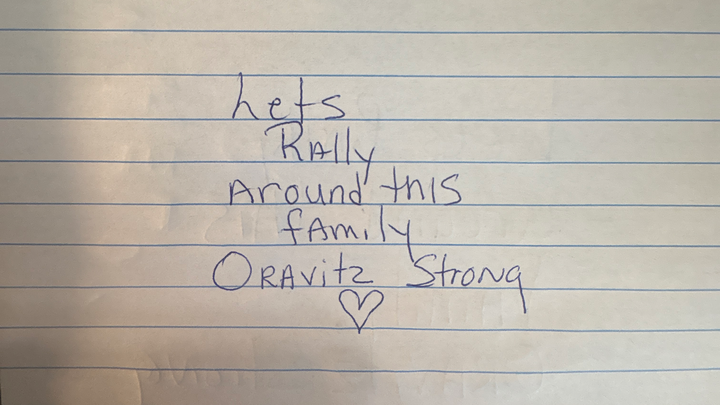 Lets
Rally
Around this
family
Oravitz Strong